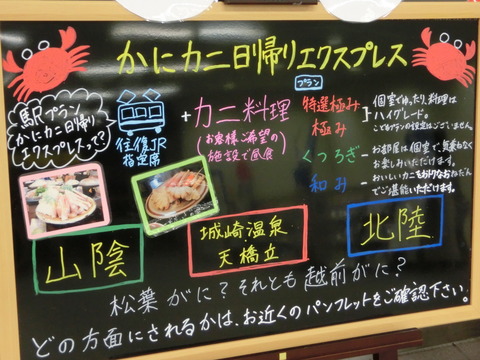 かにカニ日帰りエクスプレス
駅プラン
かにカニ日帰り
エクスプレスって?
往復JR
指定席
+カニ料理
(お客様ご希望の
施設で昼食)
プラン
特選極み
極み
個室でゆったり、料理は
ハイグレード。
こどもプランの設定はございません。
くつろぎ
お部屋は個室で気兼ねなく
お楽しみいただけます。
和み
おいしいカニもお手頃なおねだん
でご堪能いただけます。
山陰
城崎温泉
天橋立
北陸
松葉がに?それとも越前がに?
どの方面にされるかは、お近くのパンフレットをご確認下さい。